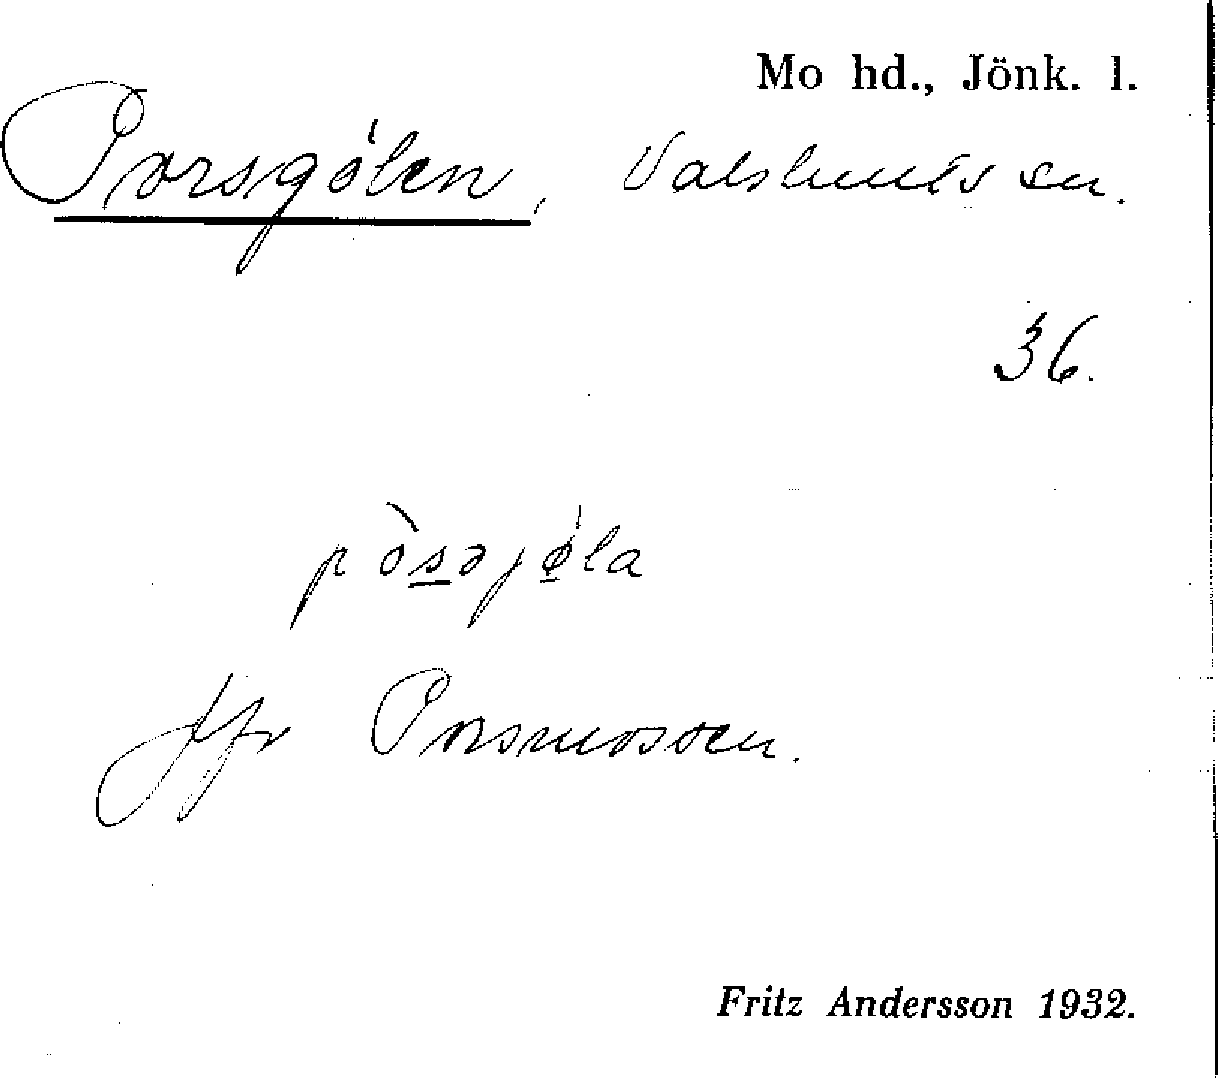 Mo hd., Jönk. l.
Porsgölen, Valshults sn.
36.
pòsəjø̀la
Jfr Porsmossen.
Fritz Andersson 1932.